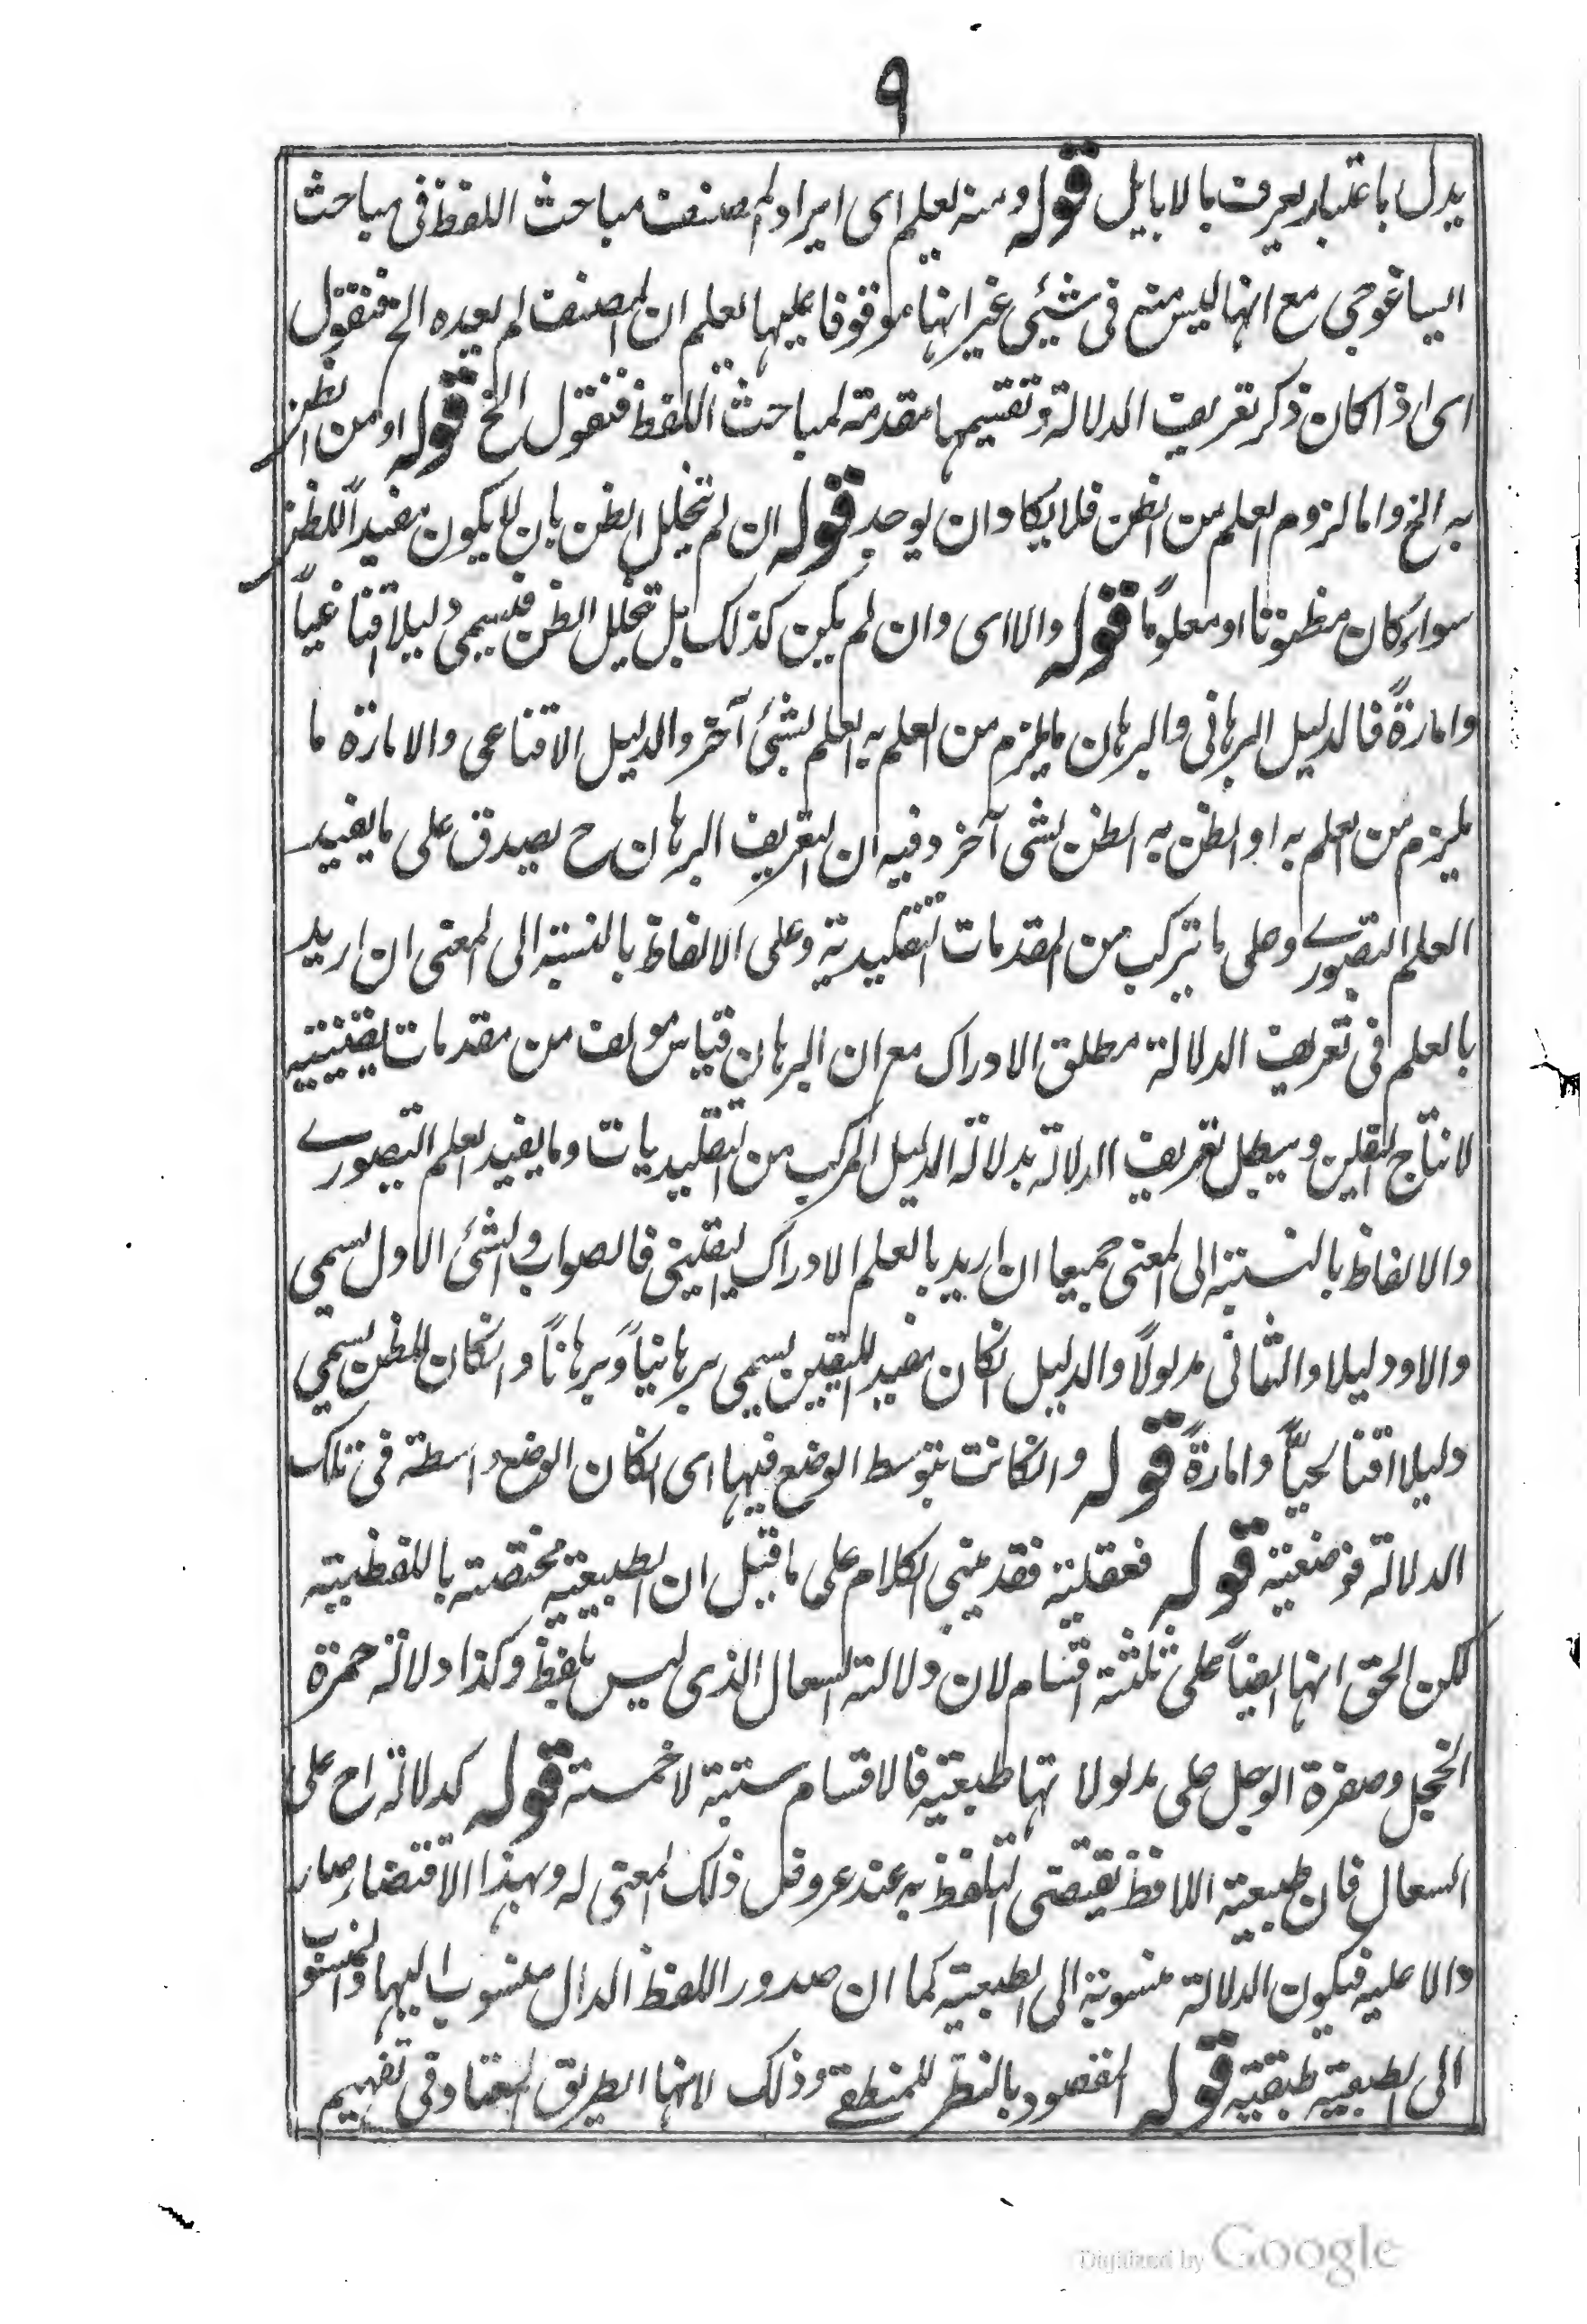 ٩
يدل باعتبار يعرف بالابايل قوله ومنه يعلم اى ايراد المصنف مباحث اللفظ فى مباحث
ايساغوجى مع انها ليس منع فى شيئى غير انها موقوفا عليها يعلم ان المصنف لم يعده الخ فنقول
اى اذا كان ذكر تعريف الدلالة وتقسيمها مقدمة لمباحث اللفظ فنقول الخ قوله او من الظن
به الخ واما لزوم العلم من الظن فلا يكاد ان يوجد قوله ان لم يتخلل الظن بان لا يكون مفيداً للظن
سواء كان مظنونا او معلوماً قوله والا اى وان لم يكن كذلك بل تخلل الظن فيسمى دليلا اقناعياً
وامارةً فالدليل البرهانى والبرهان ما يلزم من العلم به العلم بشئ آخر والدليل الاقناعى والامارة ما
يلزم من العلم به او الظن به الظن بشى آخر وفيه ان التعريف البرهان ح يصدق على ما يفيد
العلم التصورے وعلى ما يتركب من المقدمات التقليدية وعلى الالفاظ بالنسبة الى المعنى ان اريد
بالعلم فى تعريف الدلالة مطلق الادراك مع ان البرهان قياس مولف من مقدمات يقينية
لانتاج اليقين ويبطل تعريف الدلالة بدلالة الدليل المركب من التقليديات وما يفيد العلم التصورے
والالفاظ بالنسبة الى المعنى جميعا ان اريد بالعلم الادراك اليقينى فالصواب والشئ الاول يسمى
دالا ودليلا والثانى مدلولاً والدليل انكان مفيد لليقين يسمى برهانياً وبرهاناً وانكان للظن يسمى
دليلا اقناعياً وامارةً قوله وانكانت بتوسط الوضع فيها اى انكان الوضع واسطة فى تلك
الدلالة فوضعية قوله فعقلية فقد بنى الكلام على ما قيل ان الطبيعية مختصة باللفظية
لكن الحق انها ايضاً على ثلثة اقسام لان دلالة السعال الذى ليس بلفظ وكذا دلالة حمرة
الخجل وصفرة الوجل على مدلولاتها طبعية فالاقسام ستة لا خمسة قوله كدلالة اح على
السعال فان طبيعة اللافظ تقتضى التلفظ به عند عروض ذلك المعنى له وبهذا الاقتضاء صار
دالا عليه فيكون الدلالة منسوبة الى الطبعية كما ان صدور اللفظ الدال منسوب اليها والمنسوب
الى الطبعية طبعية قوله المقصود بالنظر للمنطقے وذلك لانها الطريق المعتاد فى تفهيم
Digitized by Google